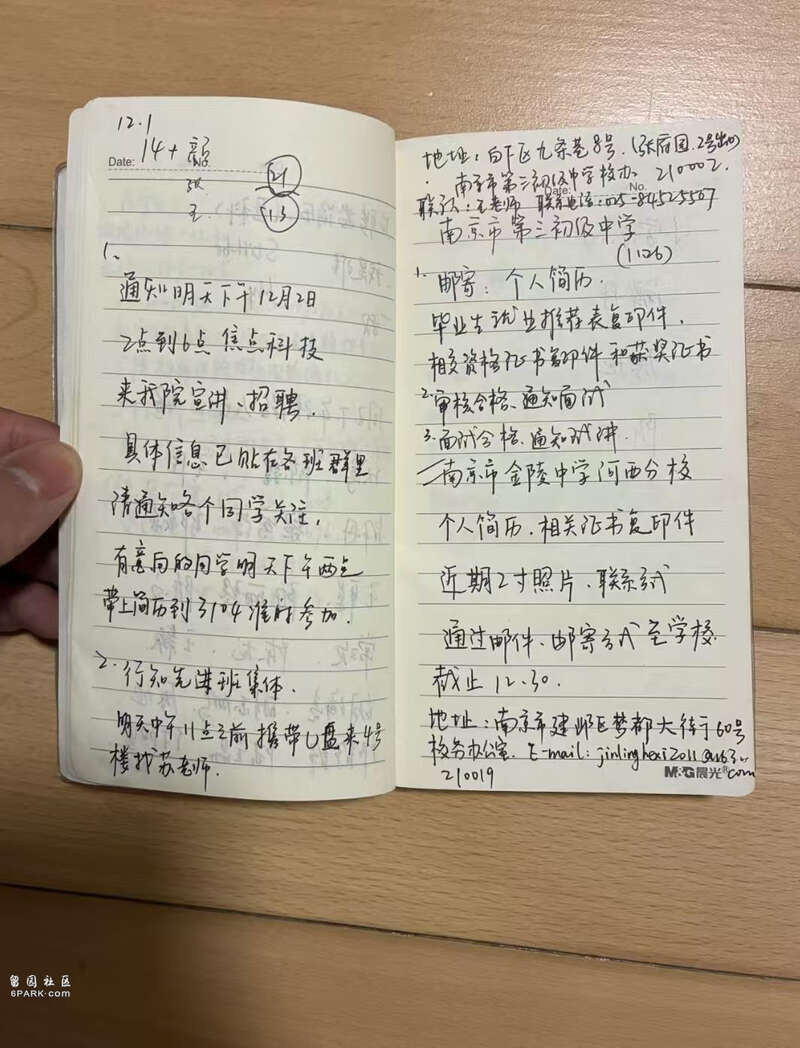 12.1
Date: 14+ No.
21
王 13
1.
通知明天下午12月2日
2点到6点 焦点科技
来我院宣讲、招聘.
具体信息已贴在各班群里
请通知各个同学关注,
有意向的同学明天下午两点
带上简历到3104准时参加.
2. 行知先进班集体.
明天中午11点之前携带U盘来4号
楼找苏老师.
地址: 白下区九条巷8号. (张府园.2号出口)
南京市第三初级中学校办 210002.
Date: No.
联系人: 王老师 联系电话: 025-84525507
南京市第三初级中学
(1126)
1. 邮寄: 个人简历.
毕业生就业推荐表复印件.
相关资格证书复印件和获奖证书
2. 审核合格、通知面试
3. 面试合格、通知试讲.
南京市金陵中学河西分校
个人简历.相关证书复印件
近期2寸照片、联系方式
通过邮件、邮寄方式至学校.
截止12.30.
地址: 南京市建邺区梦都大街60号
校务办公室. E-mail: jinlinghexi2011@163.
com
M&G晨光®
210019
留园社区
6PARK.com